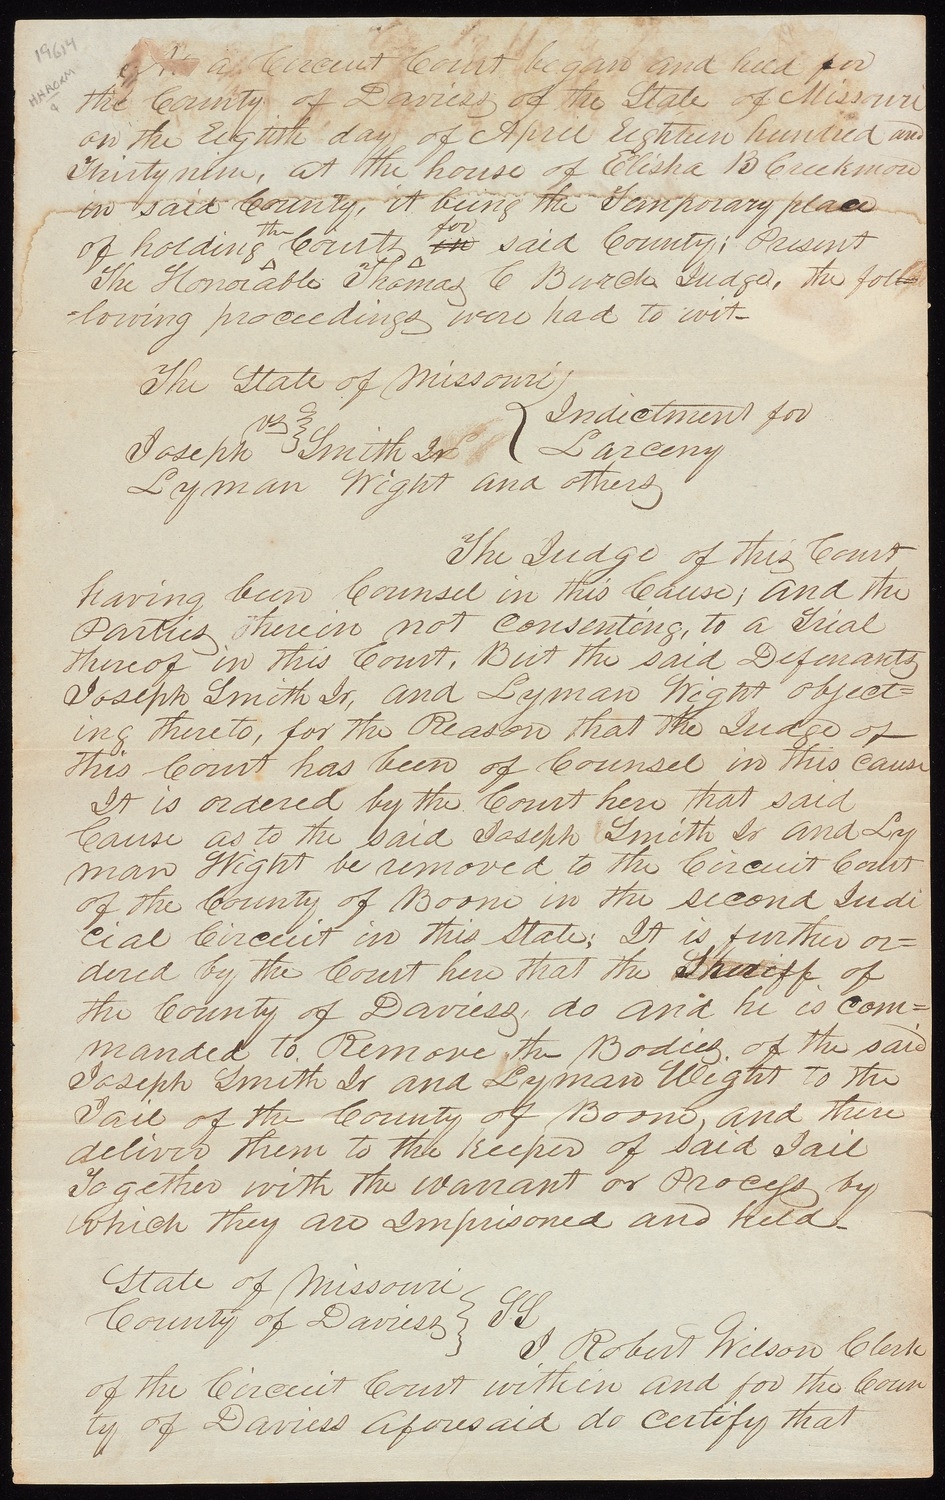 19614
At a Circuit Court began and held for
the County of Daviess of the State of Missouri
on the Eighth day of April Eighteen hundred and
Thirty nine, at the house of Elisha B Creekmore
in said County, it being the Temporary place
of holding the Courts in for said County; Present
The Honorable Thomas C Burch Judge, the fol-
-lowing proceedings were had to wit-
The State of Missouri
vs } Indictment for
Joseph Smith Jr { Larceny
Lyman Wight and others
The Judge of this Court
having been Counsel in this Cause; and the
Parties therein not consenting, to a Trial
thereof in this Court, But the said Defenants
Joseph Smith Jr, and Lyman Wight object=
ing thereto, for the Reason that the Judge of
this Court has been of Counsel in this cause
It is ordered by the Court here that said
Cause as to the said Joseph Smith Jr and Ly
man Wight be removed to the Circuit Court
of the County of Boone in the second Judi
cial Circuit in this State; It is further or=
dered by the Court here that the Sheriff of
the County of Daviess, do and he is com=
manded to Remove the Bodies of the said
Joseph Smith Jr and Lyman Wight to the
Jail of the County of Boone, and there
deliver them to the Keeper of said Jail
Together with the warrant or Process by
which they are Imprisoned and held-
State of Missouri
County of Daviess } SS
I Robert Wilson Clerk
of the Circuit Court within and for the Coun
ty of Daviess aforesaid do certify that